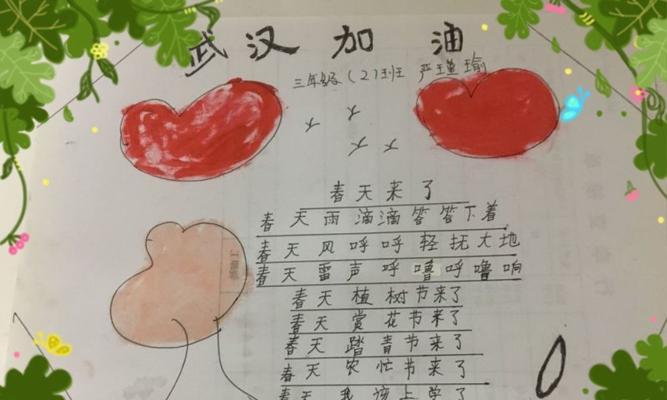 武汉加油
三年级(2)班 严瑾瑜
春天来了
春天雨滴滴答答下着
春天风呼呼轻抚大地
春天雷声呼噜呼噜响
春天植树节来了
春天赏花节来了
春天踏青节来了
春天农忙节来了
春天我该上学了